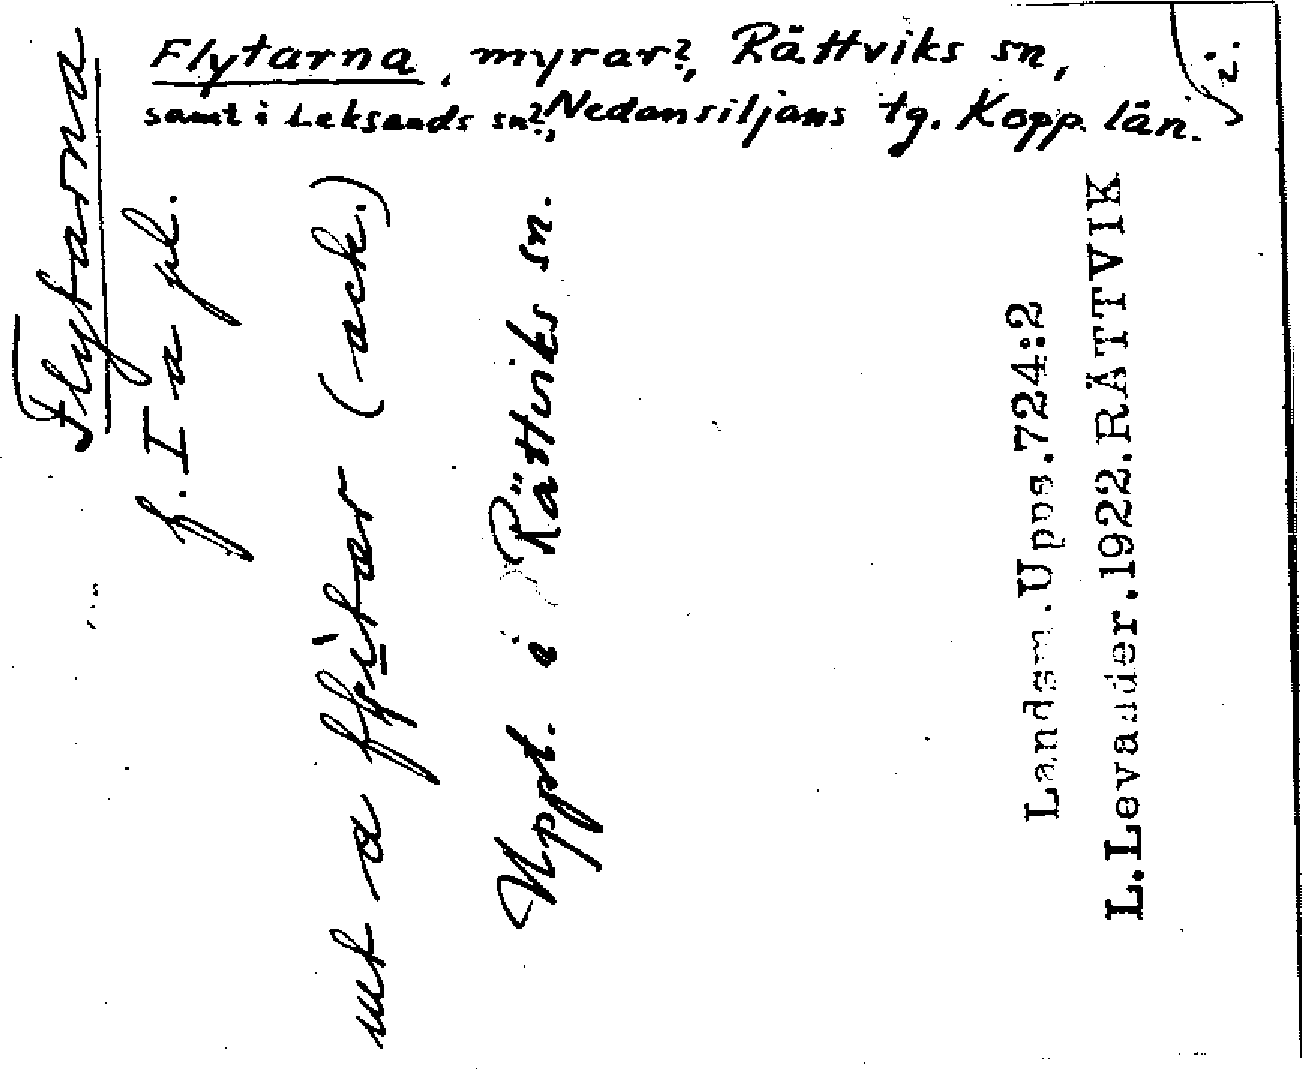 Flytarna, myrar?, Rättviks sn,
samt i Leksands sn?, Nedansiljans tg. Kopp. län.
Flytarna
f. I a pl.
ut a
(ack.)
Uppt. i Rättviks sn.
Landsm. Upps. 724:2
L. Levander. 1922. RÄTTVIK